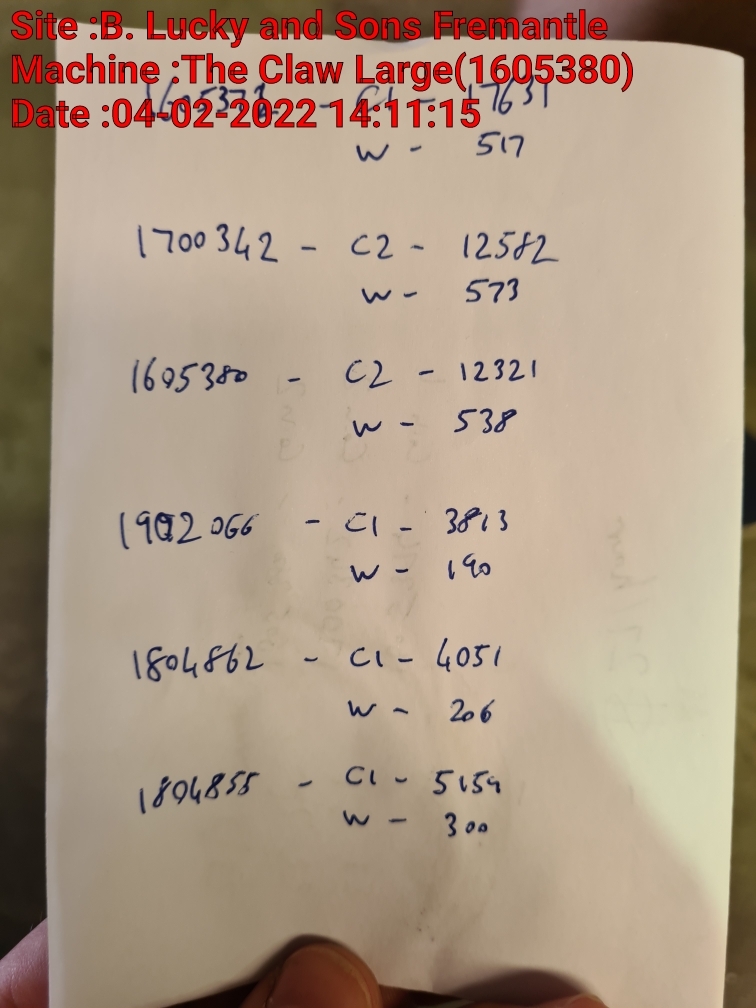 Site :B. Lucky and Sons Fremantle
Machine :The Claw Large(1605380)
Date :04-02-2022 14:11:15
C1 - 17631
W - 517
1700342 - C2 - 12582
W - 573
1605380 - C2 - 12321
W - 538
1902066 - C1 - 3813
W - 190
1804862 - C1 - 4051
W - 206
1804855 - C1 - 5154
W - 300